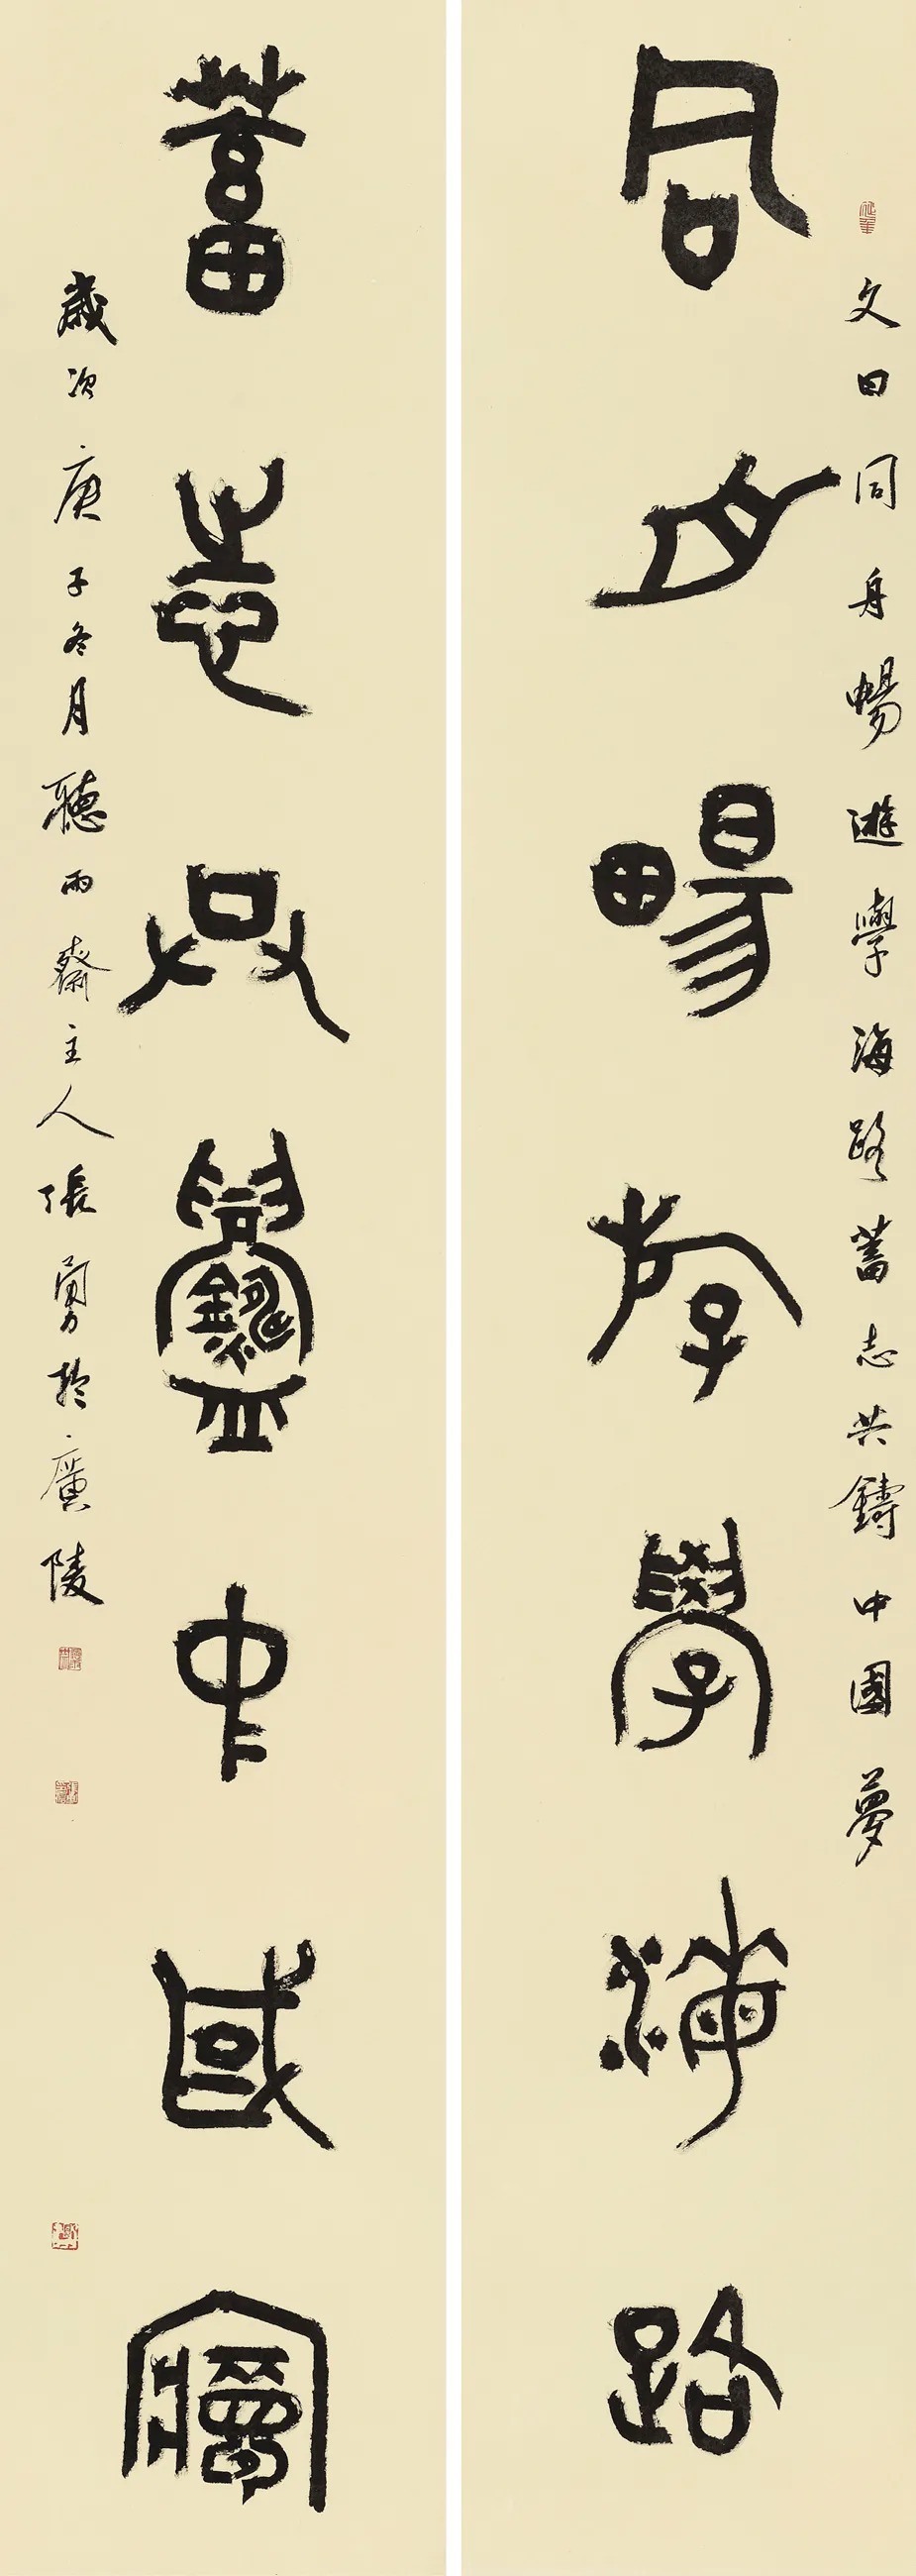 文曰同舟暢遊學海路蓄志共鑄中國夢
同舟暢遊學海路
蓄志共鑄中國夢
歲次庚子冬月聽雨齋主人張勇於廣陵